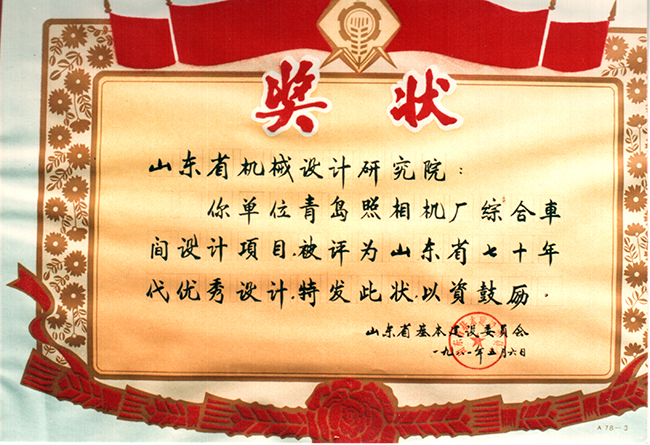 奖状
山东省机械设计研究院：
你单位青岛照相机厂综合車
间设计项目，被评为山东省七十年
代优秀设计，特发此状，以資鼓励。
山东省基本建设委员会
一九八一年五月六日
A78-3